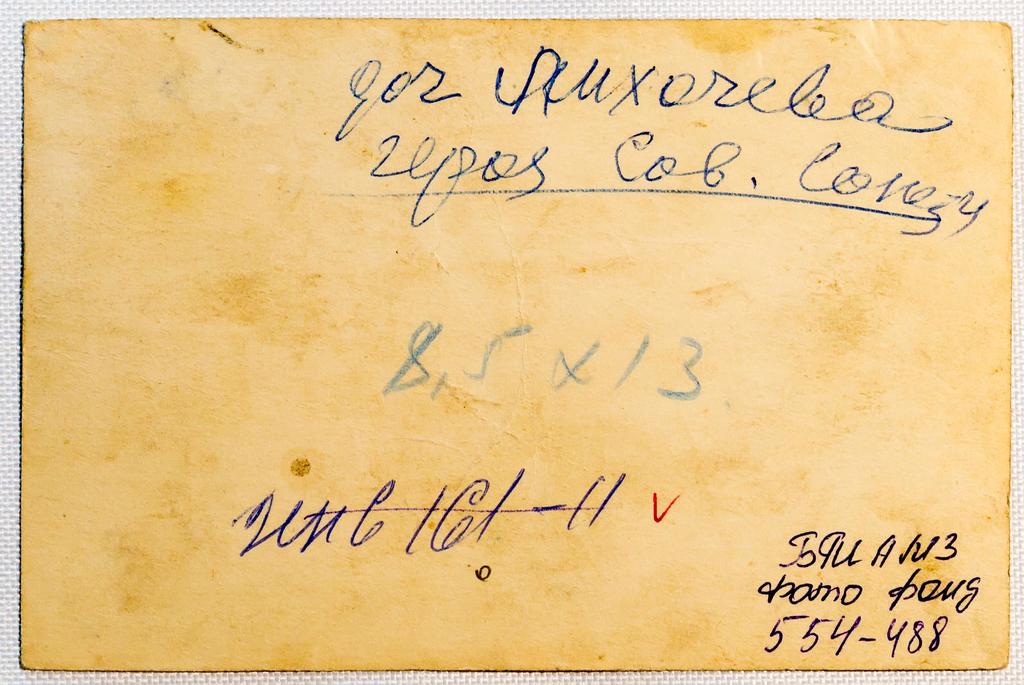 доч Лихачева
героя Сов. Союза
8,5 х 13
инв 161-11 v
БГИАМЗ
фото фонд
554-488